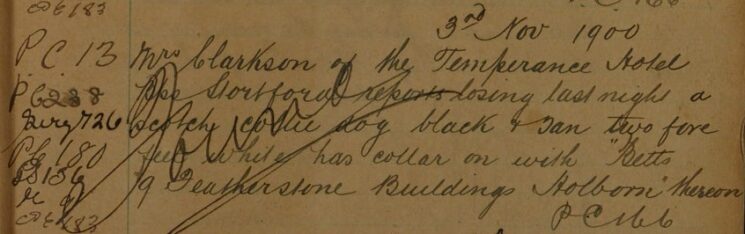 3rd Nov 1900
P C 13 Mrs Clarkson of the Temperance Hotel
PC 238 Bps Stortford reports losing last night a
726 scotch collie dog black & Tan two fore
180 feet white has collar on with "Betts
156 9 Featherstone Buildings Holborn" thereon
183 PC 166
Found